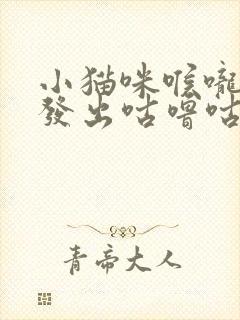 小猫咪喉嚨
發出咕嚕咕
青帝大人